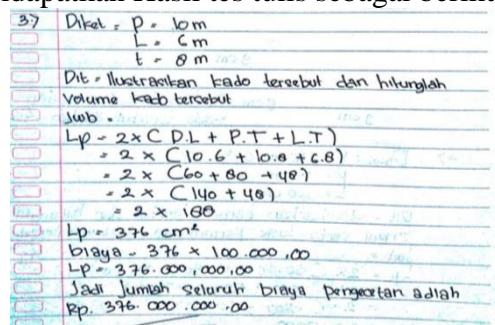 37 Diket = P = 10 m
L = 6 m
t = 8 m
Dit = Ilustrasikan kado tersebut dan hitunglah
volume kado tersebut
Jwb =
Lp = 2 x ( P.L + P.T + L.T)
= 2 x (10.6 + 10.8 + 6.8)
= 2 x (60 + 80 + 48)
= 2 x (140 + 48)
= 2 x 188
Lp = 376 cm²
biaya = 376 x 100.000,00
Lp = 376.000,000,00
Jadi jumlah seluruh biaya pengecetan adlah
Rp. 376.000.000.00